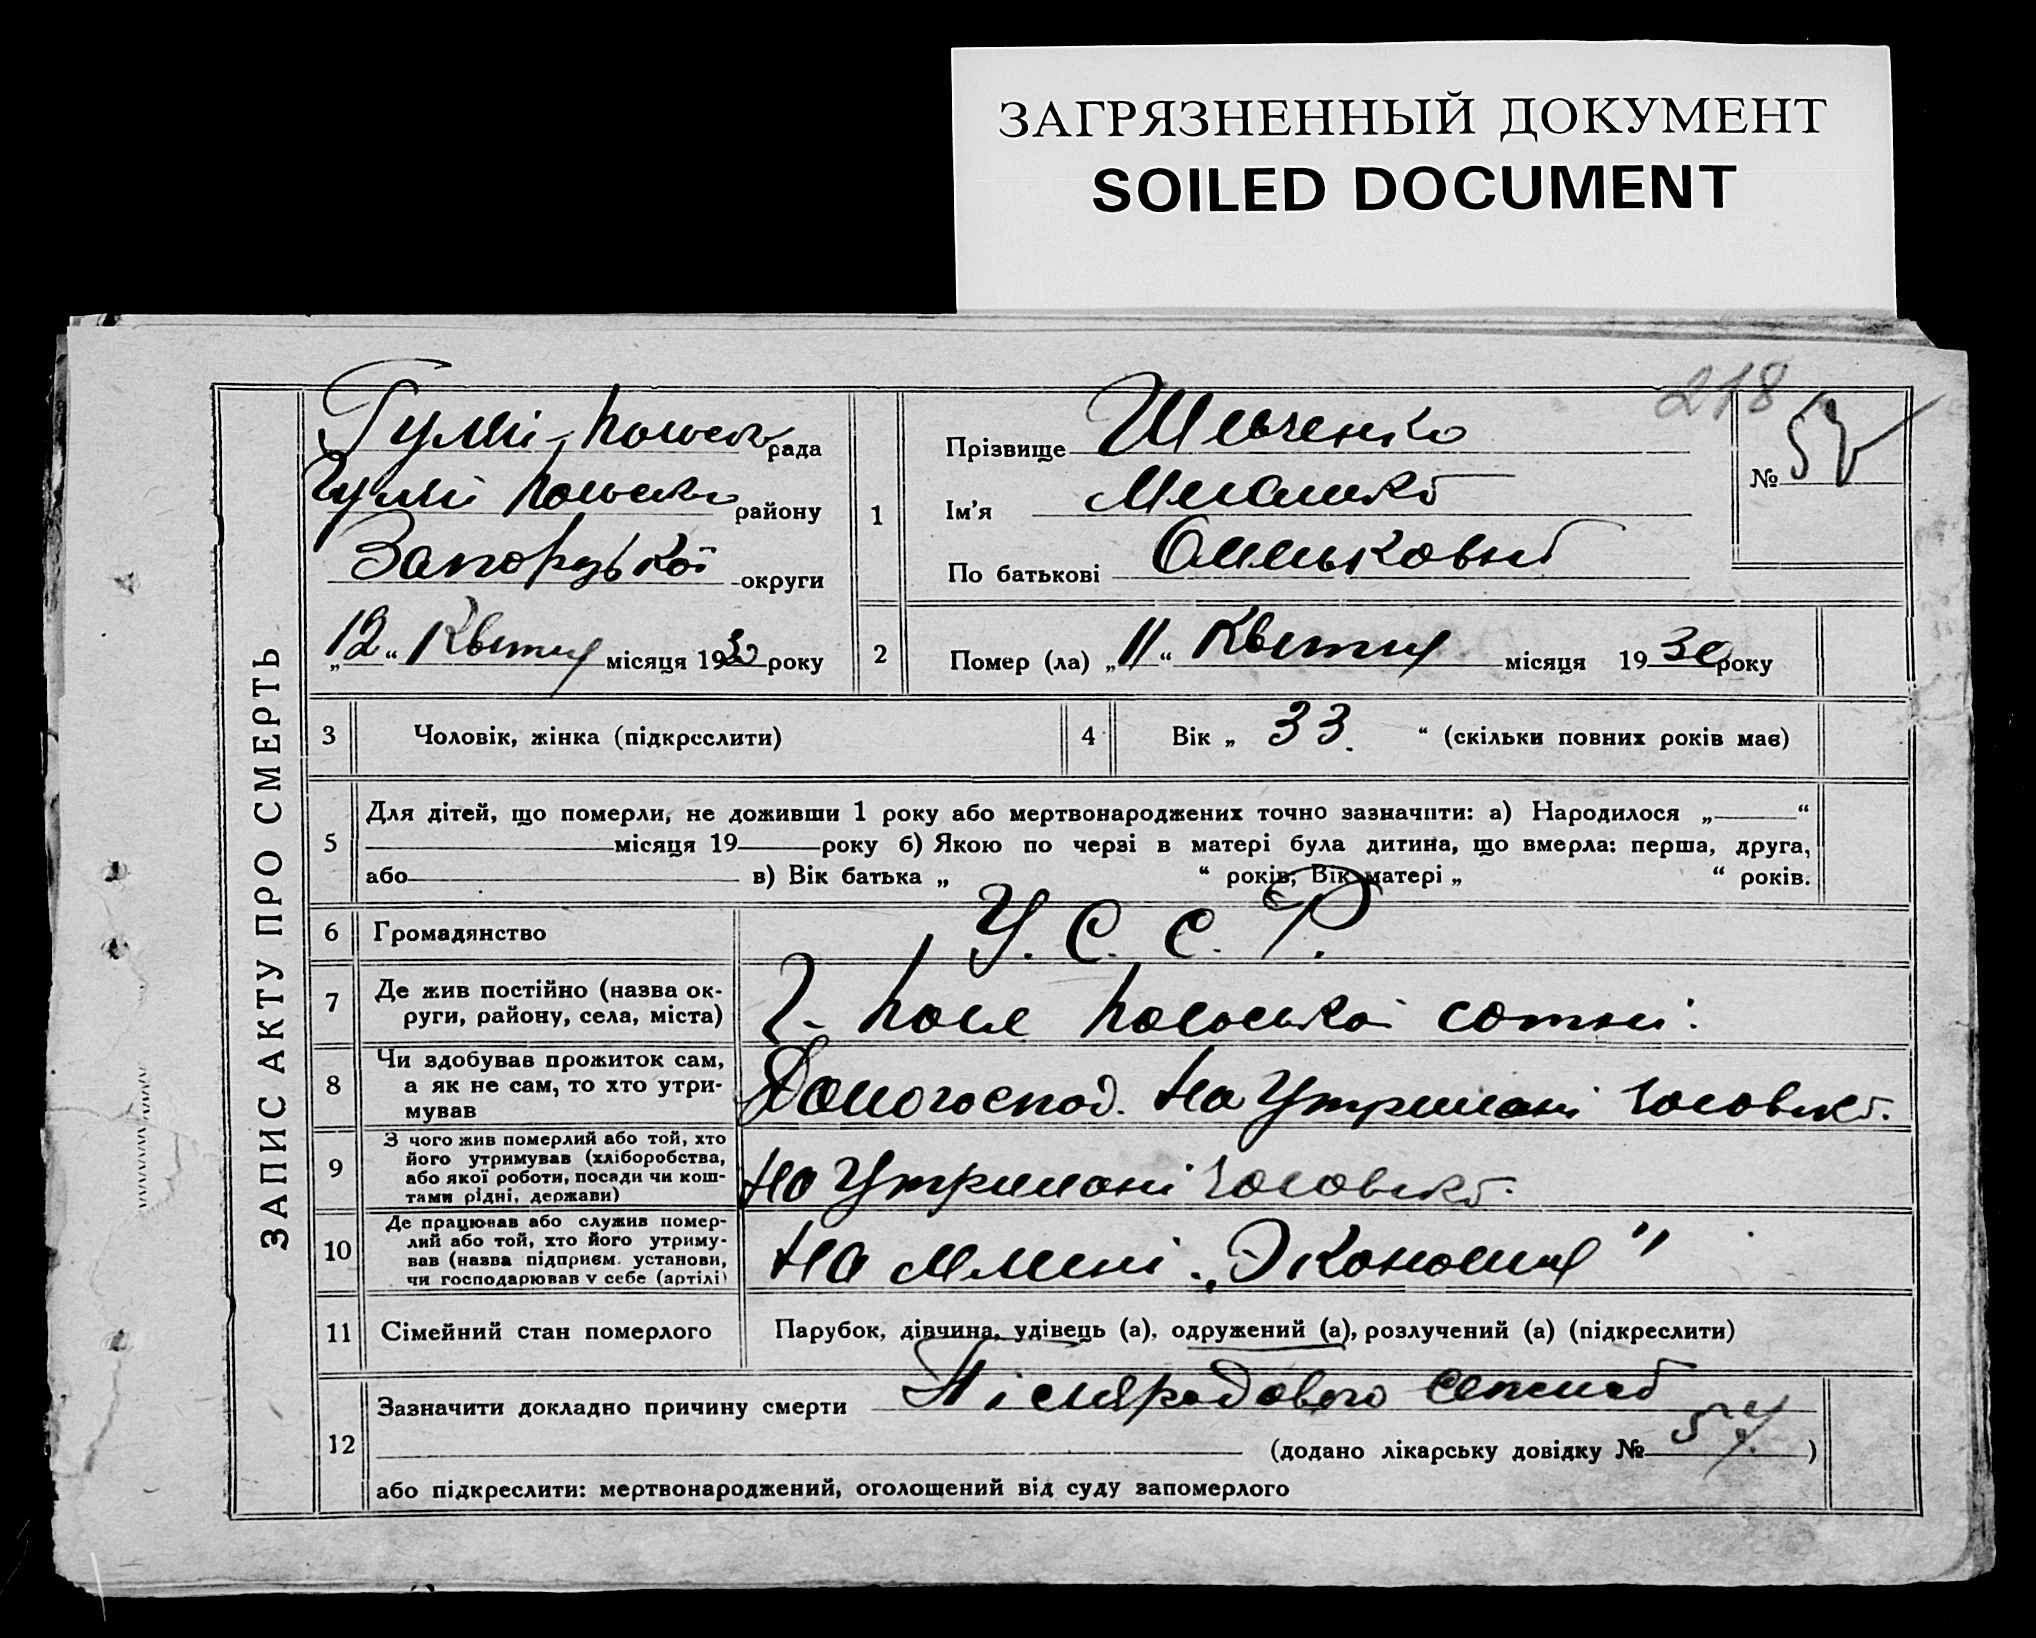 ЗАГРЯЗНЕННЫЙ ДОКУМЕНТ
SOILED DOCUMENT
218
ЗАПИС АКТУ ПРО СМЕРТЬ
Гуляй-Польська рада
Гуляй Польського району
Запорізької округи
„12“ Квітня місяця 1930 року
1
Прізвище Шевченко
Ім'я
По батькові
№ 52
2
Помер (ла) „11“ Квітня місяця 1930 року
3 Чоловік, жінка (підкреслити)
4 Вік „33“ (скільки повних років має)
5
Для дітей, що померли, не доживши 1 року або мертвонароджених точно зазначити: а) Народилося „ “
місяця 19 року б) Якою по черзі в матері була дитина, що вмерла: перша, друга,
або в) Вік батька „ “ років, Вік матері „ “ років.
6 Громадянство У. С. С. Р.
7 Де жив постійно (назва ок-
руги, району, села, міста)
Г- Поле Польської сотні.
8 Чи здобував прожиток сам,
а як не сам, то хто утри-
мував
Домогоспод. На Утримані чоловіка.
9 З чого жив померлий або той, хто
його утримував (хліборобства,
або якої роботи, посади чи кош-
тами рідні, держави)
На Утримані чоловіка.
10 Де працював або служив помер-
лий або той, хто його утриму-
вав (назва підприєм. установи,
чи господарював у себе (артілі)
На млині „Економія"
11 Сімейний стан померлого
Парубок, дівчина, удівець (а), одружений (а), розлучений (а) (підкреслити)
12
Зазначити докладно причину смерти Післяродового сепсиса
(додано лікарську довідку № 54)
або підкреслити: мертвонароджений, оголошений від суду запомерлого